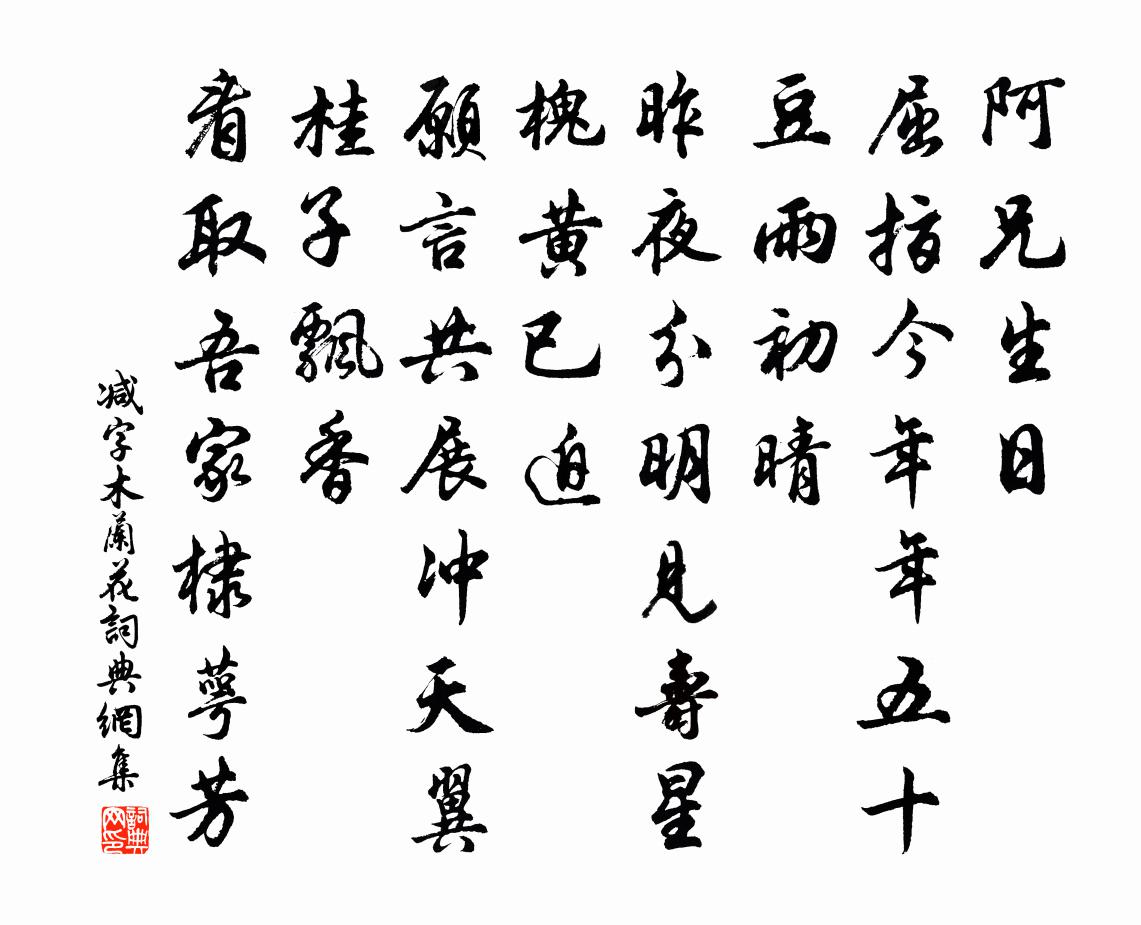 阿兄生日
屈指今年年五十
豆雨初晴
昨夜分明見壽星
槐黄已迫
願言共展冲天翼
桂子飄香
看取吾家棣萼芳
减字木蘭花詞典網集
詞典网印